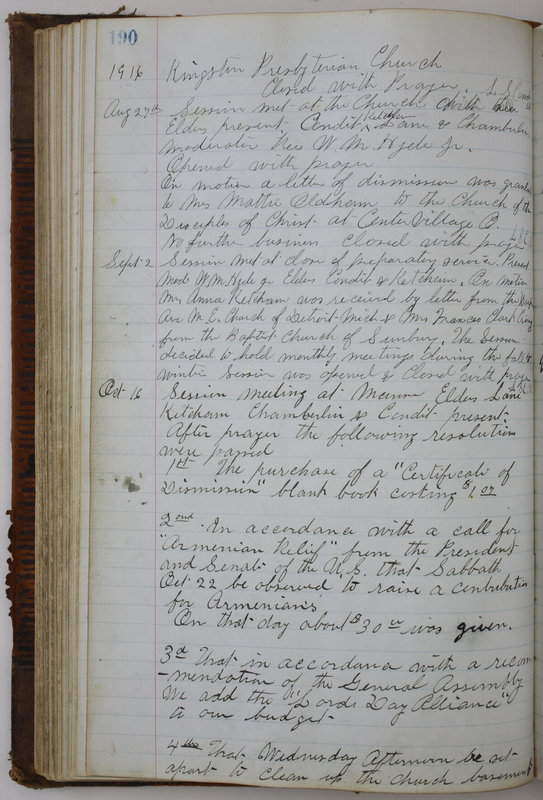 190
1916 Kingston Presbyterian Church
Closed with Prayer. L. S.
Aug 27th Session met at the Church with
Elders present Condit, Ketcham Lane & Chamberlin
moderator Rev W. M. Hyde Jr.
Opened with prayer
On motion a letter of dismission was granted
to Mrs Mattie Oldham to the Church of the
Disciples of Christ at Center Village O.
No further business closed with prayer
Sept 2 Session met at close of preparatory service. Present
Mod. W. M. Hyde Jr Elders Condit & Ketcham. On motion
Mrs Anna Ketcham was received by letter from the
Ave M. E. Church of Detroit Mich & Mrs Frances Clark
from the Baptist Church of Sunbury. The Session
decided to hold monthly meetings during the fall &
winter Session was opened & Closed with prayer
Oct 16 Session meeting at Manse Elders Lane
Ketcham Chamberlin & Condit present.
After prayer the following resolutions
were passed
1st The purchase of a "Certificate of
Dismission" blank book costing $1.00
2nd. In accordance with a call for
"Armenian Relief" from the President
and Senate of the U.S. that Sabbath
Oct 22 be observed to raise a contribution
for Armenians
On that day about $30 00 was given.
3d That in accordance with a recom
-mendation of the General Assembly
We add the "Lords Day Alliance"
to our budget
4th That Wednesday Afternoon be set
apart to clean up the church basement